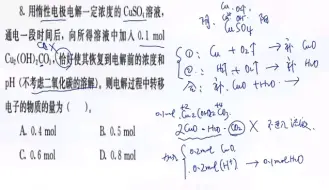 8. 用惰性电极电解一定浓度的 CuSO₄ 溶液,
通电一段时间后，向所得溶液中加入 0.1 mol
Cu₂(OH)₂CO₃，恰好使其恢复到电解前的浓度和
pH (不考虑二氧化碳的溶解)。则电解过程中转移
电子的物质的量为（　　）。
A. 0.4 mol　B. 0.5 mol
C. 0.6 mol　D. 0.8 mol
CuSO₄
①: Cu + O₂↑ → 补 CuO
②: H₂↑ + O₂↑ → 补 H₂O
补 CuO + H₂O
0.1mol Cu₂(OH)₂CO₃
2CuO · H₂O · CO₂ ×
0.2mol CuO
0.2mol (H⁺) → 0.1mol H₂O